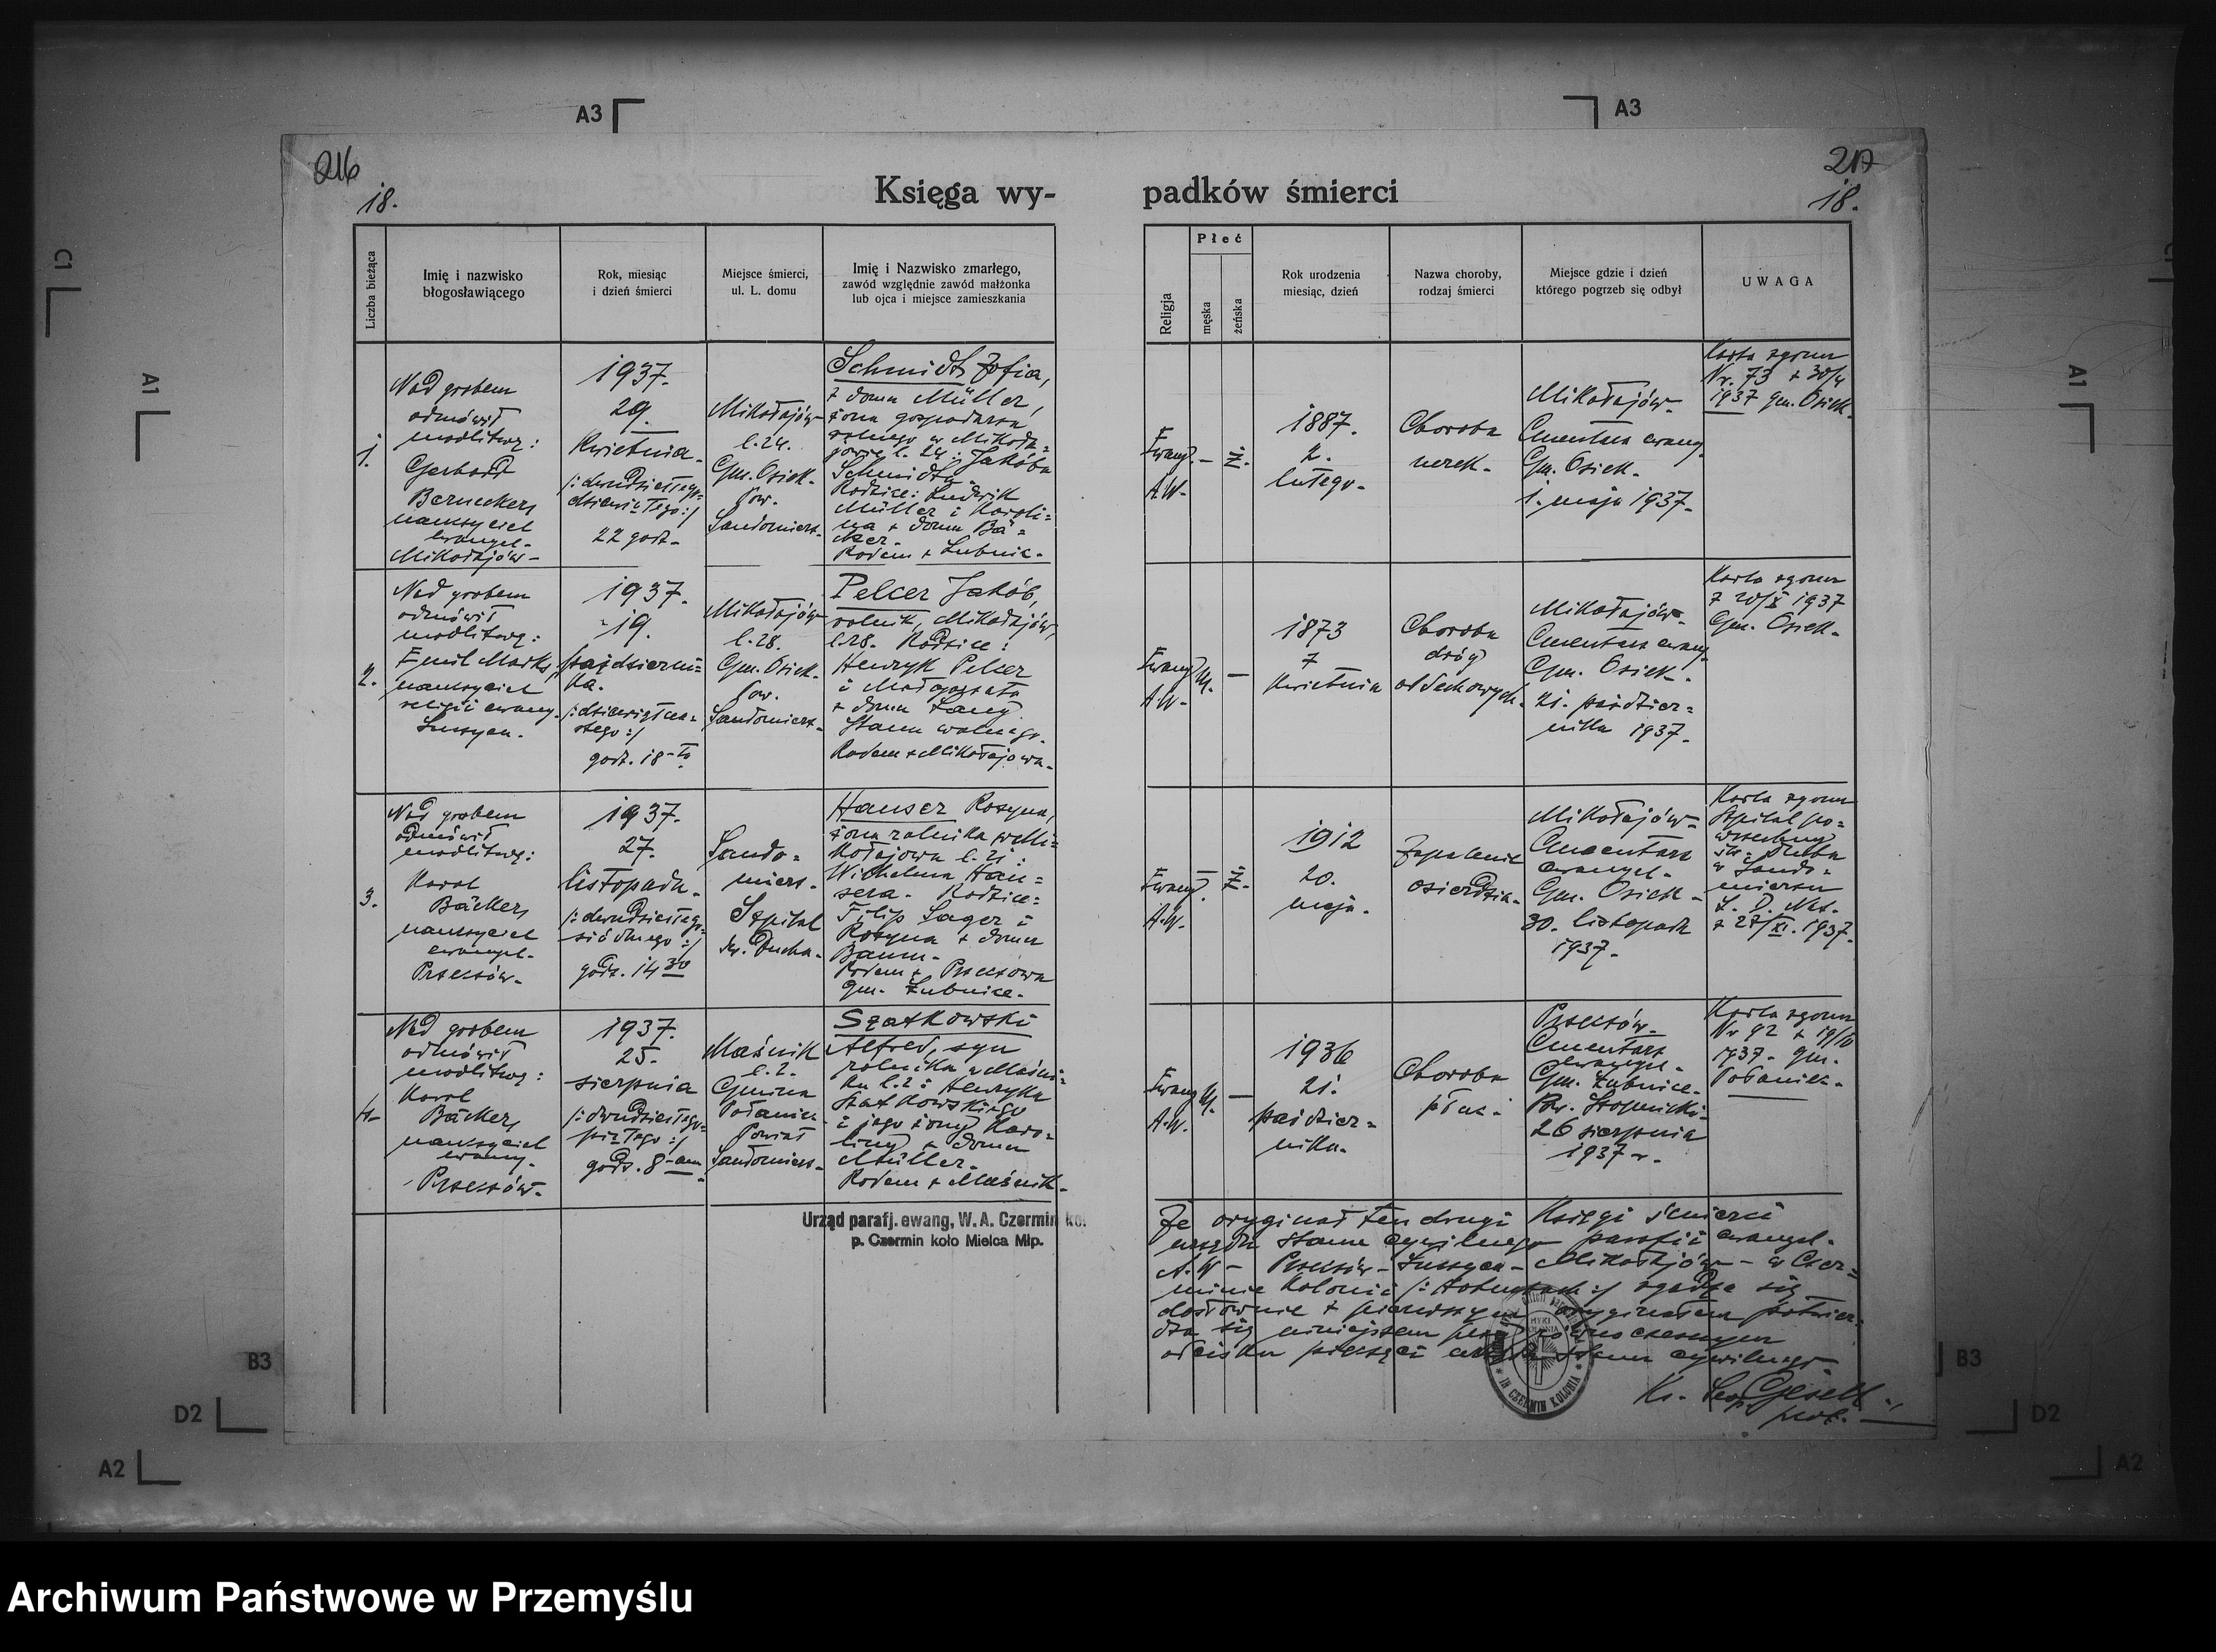 A3
A3
216
217
18.
18.
Księga wy-
padków śmierci
Liczba bieżąca
Imię i nazwisko
błogosławiącego
Rok, miesiąc
i dzień śmierci
Miejsce śmierci,
ul. L. domu
Imię i Nazwisko zmarłego,
zawód względnie zawód małżonka
lub ojca i miejsce zamieszkania
Religja
Płeć
męska
żeńska
Rok urodzenia
miesiąc, dzień
Nazwa choroby,
rodzaj śmierci
Miejsce gdzie i dzień
którego pogrzeb się odbył
UWAGA
1.
Nad grobem
odmówił
modlitwę:
Gerhard
Berneckers
nauczyciel
ewangel.
Mikołajów-
1937.
29.
Kwietnia-
/:dwudziestego-
dziewiątego:/
22 godz-
Mikołajów
l. 24.
Gm. Osiek-
Pow.
Sandomierz-
Schmidt Zofia,
z domu Müller,
żona gospodarza
rolnego w Mikoła=
jowie l. 24: Jakóba
Schmidta-
Rodzice: Ludwik
Müller i Karoli=
na z domu Bä=
cker-
Rodem z Łubnic-
Ewang.
A.W.
-
ż.
1887.
2.
lutego-
Choroba
nerek-
Mikołajów-
Cmentarz ewang.
Gm. Osiek-
1. maja 1937-
Karta zgonu
Nr. 73 z 30/4
1937 gm. Osiek-
2.
Nad grobem
odmówił
modlitwę:
Emil Marks,
nauczyciel
religii ewang.
Łuszyca.
1937.
19.
październi=
ka.
/:dziewiętna=
stego:/
godz. 18-ta
Mikołajów
l. 28.
Gm. Osiek-
Pow.
Sandomierz-
Pelcer Jakób,
rolnik, Mikołajów,
l. 28. Rodzice:
Henryk Pelcer
i Małgorzata
z domu Lang
Stanu wolnego-
Rodem z Mikołajowa-
Ewang.
A.W-
M.
-
1873
7
Kwietnia
Choroba
dróg
oddechowych-
Mikołajów-
Cmentarz ewang.
Gm. Osiek-
21. paździer=
nika 1937-
Karta zgonu
z 20/X 1937
Gm. Osiek-
3.
Nad grobem
odmówił
modlitwę:
Karol
Bäckers
nauczyciel
ewangel-
Przeczów-
1937.
27.
listopada-
/:dwudziestego-
siódmego:/
godz. 14 30
Sando=
mierz-
Szpital
św. Ducha-
Hanser Rozyna,
żona rolnika w Mi=
kołajowie l. 21:
Wilhelma Han=
sera- Rodzice:
Filip Sager i
Rozyna z domu
Baum-
Rodem z Przeczowa
gm. Łubnice-
Ewang.
A.W-
-
ż.
1912
20.
maja.
Zapalenie
osierdzia-
Mikołajów-
Cmentarz
ewangel-
Gm. Osiek-
30. listopada
1937-
Karta zgonu
Szpital po=
wszechny
św. Ducha
w Sando=
mierzu
z 27/XI. 1937-
4.
Nad grobem
odmówił
modlitwę:
Karol
Bäckers
nauczyciel
ewang.
Przeczów-
1937.
25.
sierpnia
/:dwudziestego-
piątego:/
godz. 8-
Maśnik
l. 2.
Gmina
Połaniec-
Powiat
Sandomierz-
Szatkowski
Alfred, syn
rolnika w Maśni=
ku l. 2: Henryka
Szatkowskiego
i jego żony Karo=
liny z domu
Müller-
Rodem z Maśnik-
Ewang.
A.W.
M.
-
1936
21.
paździer=
nika-
Choroba
płuc-
Przeczów-
Cmentarz
ewangel-
Gm. Łubnice-
Pow. Stopnicki-
26 sierpnia
1937 r-
Karta zgonu
Nr 92 z
1937- gm.
Połaniec-
Urząd parafj. ewang, W. A. Czermin ko.
p. Czermin koło Mielca Młp.
Że oryginał ten drugi Księgi śmierci
urzędu stanu cywilnego parafii ewangel-
A.W- Przeczów-Łuszyca-Mikołajów- w Czer=
minie Kolonii zgadza się
dosłownie z pierwszym oryginałem potwier=
dza się niniejszem przy równoczesnym
odcisku pieczęci stanu cywilnego-
IN CZERMIN KOLONIA
Ks.
C1
A1
A1
B3
B3
D2
D2
A2
A2
Archiwum Państwowe w Przemyślu